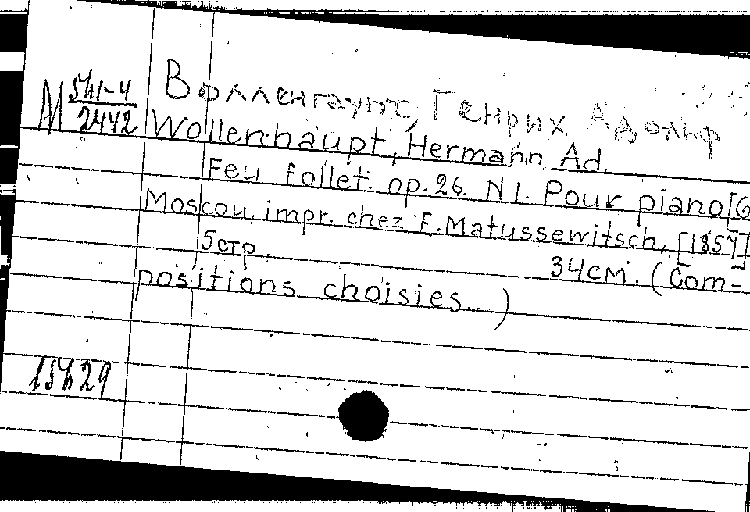 Волленгаупт, Генрих Адольф
М 541-4
2442
Wollenhaupt, Hermann Ad.
Feu follet. op. 26. N 1. Pour piano
Moscou, impr. chez F. Matussewitsch, [1857]
5 стр. 34 см. (Com-
positions choisies...)